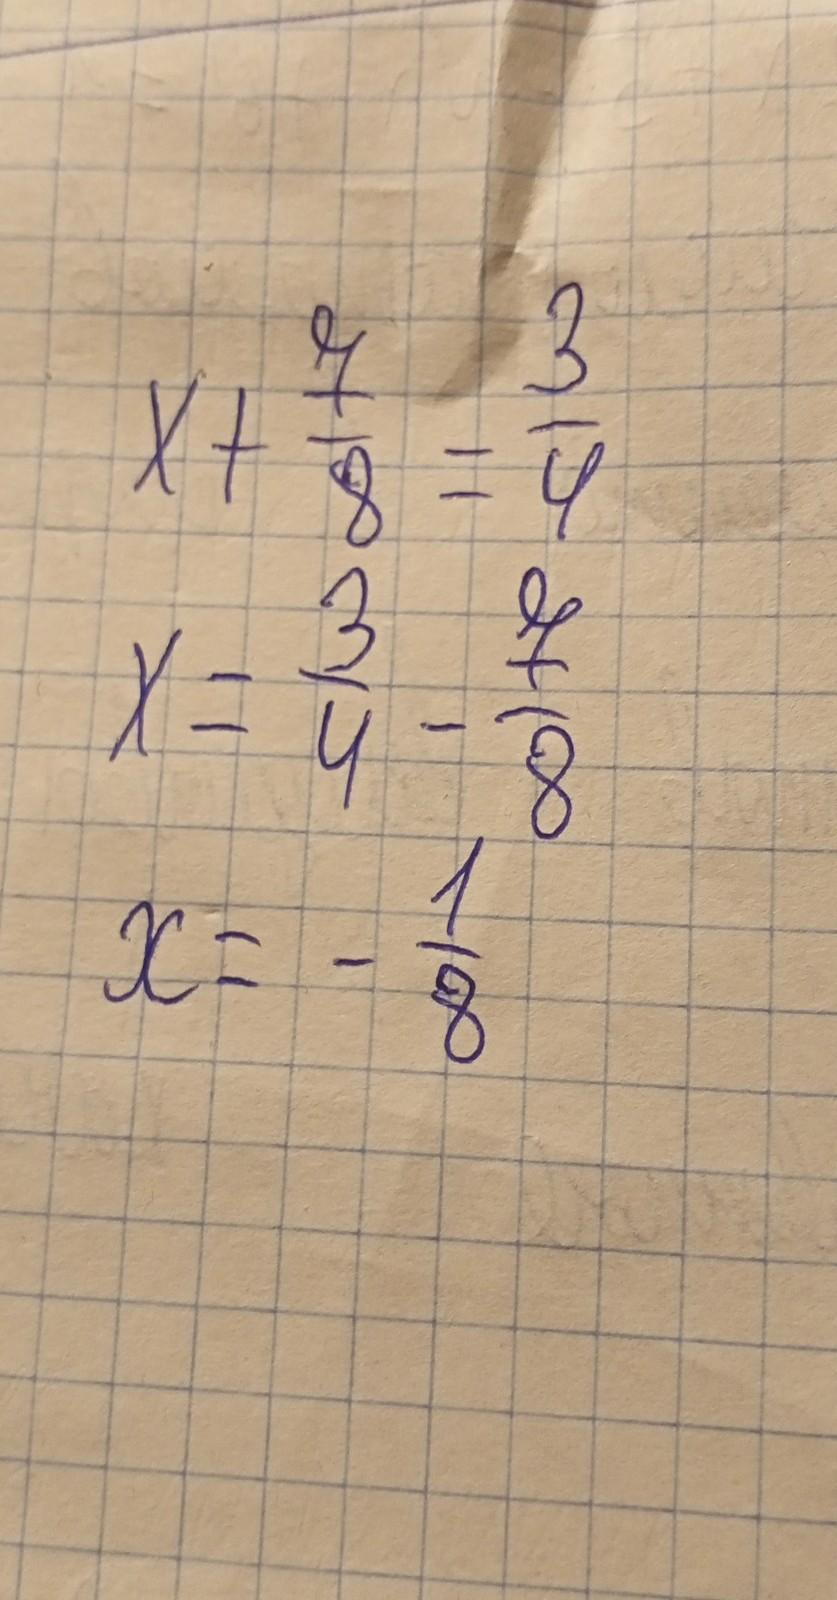 x + 7/8 = 3/4
x = 3/4 - 7/8
x = - 1/8